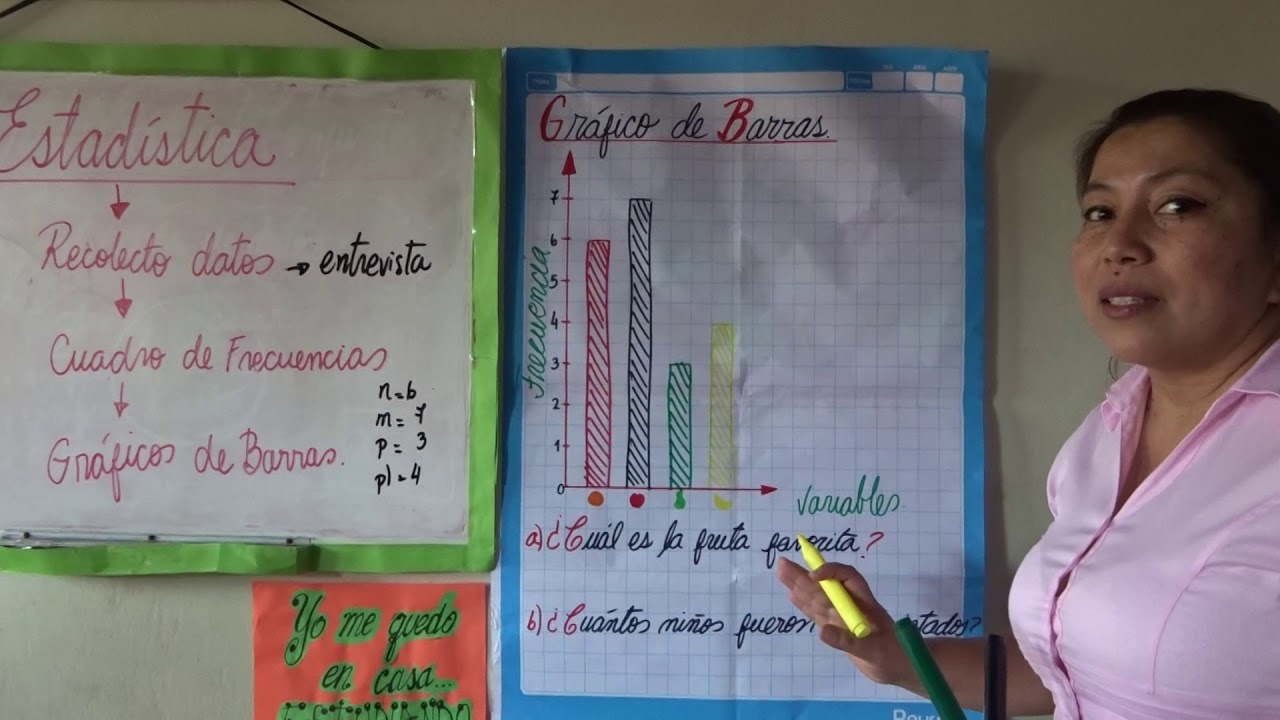 Estadística
Recolecto datos → entrevista
Cuadro de Frecuencias
n=6
m=7
p=3
pl=4
Gráficos de Barras.
Yo me quedo
en casa...
ESTUDIANDO
TEMA
FECHA
DIA
MES
AÑO
Gráfico de Barras.
Frecuencia
7
6
5
4
3
2
1
0
variables
a) ¿Cuál es la fruta favorita?
b) ¿Cuántos niños fueron